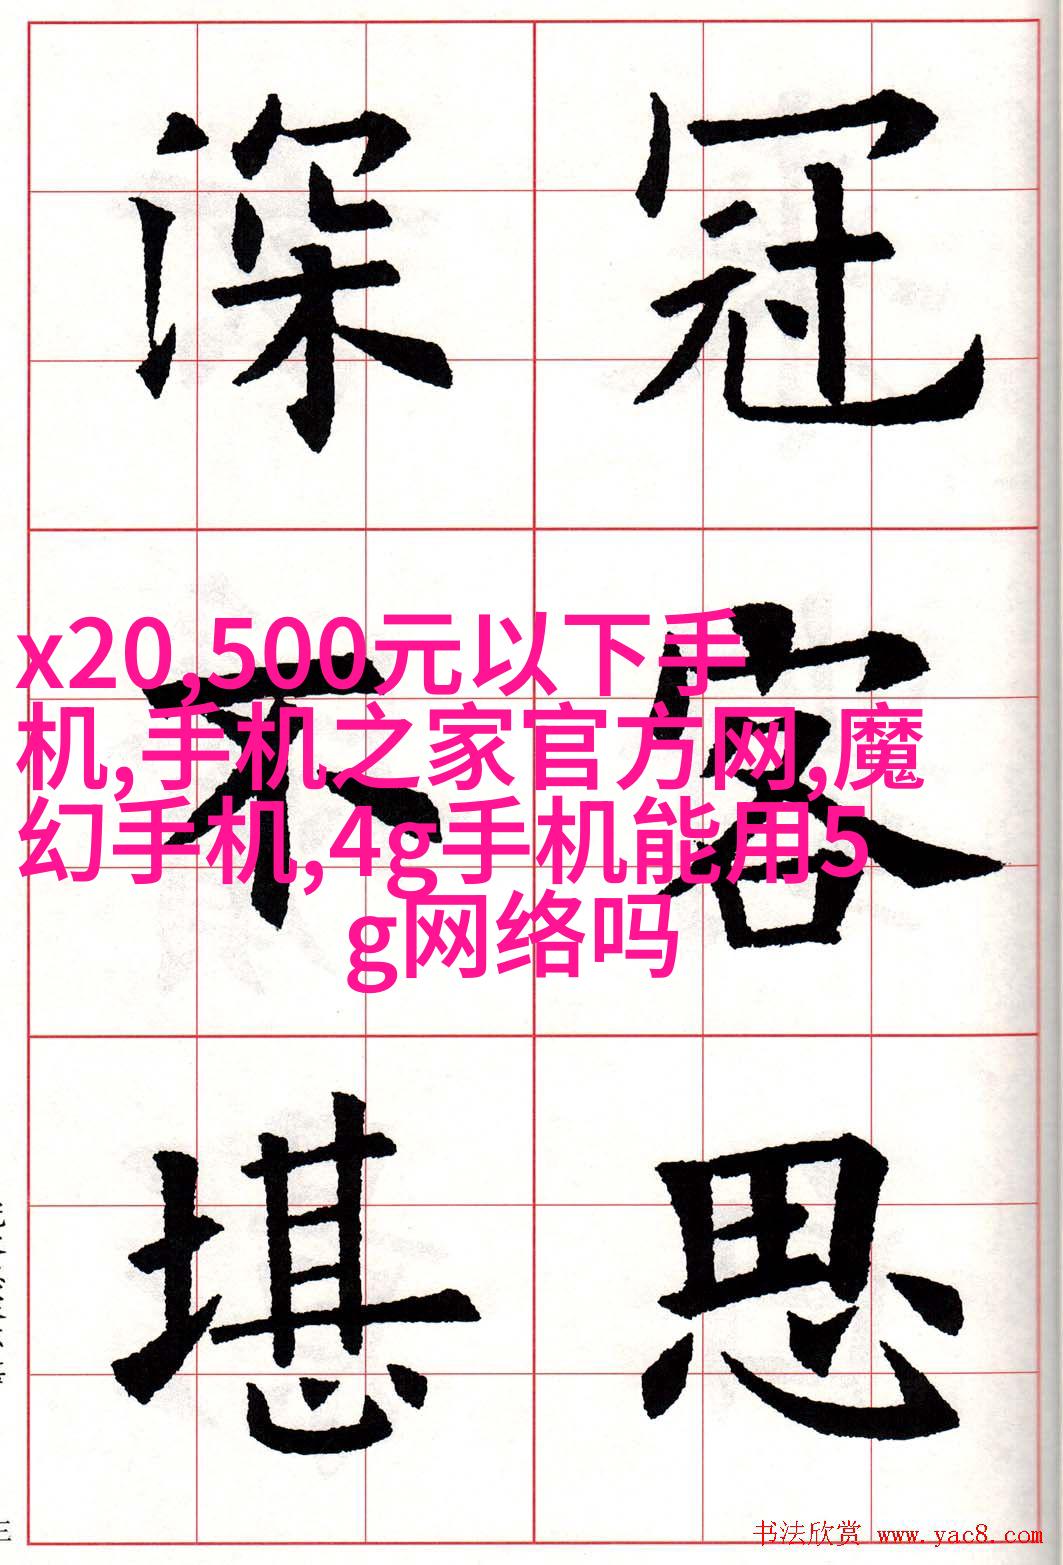 冠
客
思
深
不
堪
x20,500元以下手
机,手机之家官方网,魔
幻手机,4g手机能用5
g网络吗
书法欣赏 www.yac8.com